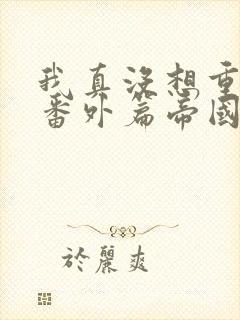 我真沒想重
番外篇帝國
於麗爽